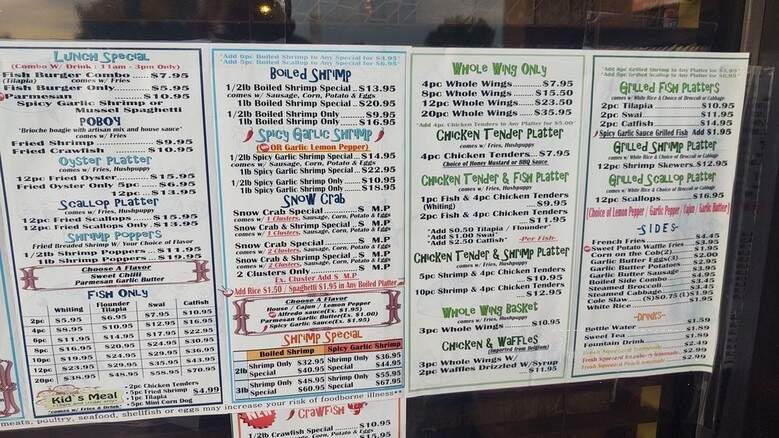 LUNCH SPECIAL
(Combo W/ Drink : 11am - 3pm Only)
Fish Burger Combo ..... $7.95
(Tilapia) comes w/ Fries
Fish Burger Only ..... $5.95
Parmesan ..... $10.95
Spicy Garlic Shrimp or
Mussel Spaghetti
POBOY
"Brioche hoagie with artisan mix and house sauce"
comes w/ Fries
Fried Shrimp ..... $9.95
Fried Crawfish ..... $10.95
OYSTER PLATTER
comes w/ Fries, Hushpuppy
12pc Fried Oyster ..... $15.95
Fried Oyster Only 5pc ..... $6.95
12pc ..... $13.95
SCALLOP PLATTER
comes w/ Fries, Hushpuppy
12pc Fried Scallops ..... $15.95
12pc Fried Scallops Only ..... $13.95
SHRIMP POPPERS
Fried Breaded Shrimp W/ Your Choice of Flavor
1/2lb Shrimp Poppers ..... $11.95
1lb Shrimp Poppers ..... $19.95
Choose A Flavor
Sweet Chilli
Parmesan Garlic
FISH ONLY
Whiting Flounder Tilapia Swai Catfish
2pc $5.95 $6.95 $7.95 $10.95
4pc $8.95 $10.95 $12.95 $16.95
6pc $11.95 $14.95 $17.95 $22.95
8pc $16.95 $20.95 $24.95 $30.95
10pc $19.95 $24.95 $29.95 $36.95
12pc $23.95 $29.95 $35.95 $43.95
20pc $38.95 $48.95 $58.95 $70.95
Kid's Meal
comes w/ Fries & Drink
• 2pc Chicken Tenders
• 5pc Fried Shrimp $4.99
• 1pc Tilapia
• 5pc Mini Corn Dog
"Add 6pc Boiled Shrimp to Any Special for $3.95"
"Add 5pc Boiled Scallop to Any Special for $6.95"
BOILED SHRIMP
1/2lb Boiled Shrimp Special .. $13.95
comes w/ Sausage, Corn, Potato & Eggs
1lb Boiled Shrimp Special ... $20.95
1/2lb Boiled Shrimp Only ..... $9.95
1lb Boiled Shrimp Only ..... $16.95
SPICY GARLIC SHRIMP
(OR Garlic Lemon Pepper)
1/2lb Garlic Shrimp Special ... $14.95
comes w/ Sausage, Corn, Potato & Eggs
1lb Garlic Shrimp Special ..... $22.95
1/2lb Spicy Garlic Shrimp Only ..... $10.95
1lb Spicy Garlic Shrimp Only ..... $18.95
SNOW CRAB
Snow Crab Special ..... $ M.P
comes w/ 1 Clusters, Sausage, Corn, Potato & Eggs
Snow Crab & Shrimp Special ..... $ M.P
comes w/ 1 Clusters, Sausage, Corn, Potato & Eggs
Snow Crab Special ..... $ M.P
comes w/ 2 Clusters, Sausage, Corn, Potato & Eggs
Snow Crab & Shrimp Special .. $ M.P
comes w/ 2 Clusters, Sausage, Corn, Potato & Eggs
2 Clusters Only ..... $ M.P
Ex. Cluster Add $ M.P
Add Rice $1.50 / Spaghetti $1.95 in Any Boiled Platter
Choose A Flavor
House / Cajun / Lemon Pepper
Alfredo sauce(Ex. $1.95)
Parmesan Garlic Butter(Ex. $1.00)
Spicy Garlic Sauce(Ex. $1.95)
SHRIMP SPECIAL
Boiled Shrimp Spicy Garlic Shrimp
2lb Shrimp Only $32.95 Shrimp Only $36.95
Special $40.95 Special $44.95
3lb Shrimp Only $48.95 Shrimp Only $55.95
Special $60.95 Special $67.95
meats, poultry, seafood, shellfish or eggs may increase your risk of foodborne illness**
CRAWFISH
1/2lb Crawfish Special ..... $10.95
Sausage, Corn, Potato & Eggs
$15.95
WHOLE WING ONLY
4pc Whole Wings ..... $7.95
8pc Whole Wings ..... $15.50
12pc Whole Wings ..... $23.50
20pc Whole Wings ..... $35.95
"Add 4pc Chicken Tenders to Any Platter for $5.00"
CHICKEN TENDER PLATTER
comes w/ Fries, Hushpuppy
4pc Chicken Tenders ... $7.95
Choice of Honey Mustard or BBQ Sauce
CHICKEN TENDER & FISH PLATTER
comes w/ Fries, Hushpuppy
1pc Fish & 4pc Chicken Tenders
(Whiting) ..... $9.95
2pc Fish & 4pc Chicken Tenders
..... $11.95
"Add $0.50 Tilapia / Flounder"
"Add $1.00 Swai"
"Add $2.50 Catfish" -Per Fish-
CHICKEN TENDER & SHRIMP PLATTER
comes w/ Fries, Hushpuppy
5pc Shrimp & 4pc Chicken Tenders
..... $10.95
10pc Shrimp & 4pc Chicken Tenders
..... $12.95
WHOLE WING BASKET
comes w/ Fries, Hushpuppy
3pc Whole Wings ..... $10.95
CHICKEN & WAFFLES
(Imported from Belgium)
3pc Whole Wings W/
2pc Waffles Drizzled W/Syrup
..... $11.95
"Add 6pc Grilled Shrimp to Any Platter for $3.95"
"Add 5pc Grilled Scallop to Any Platter for $6.95"
GRILLED FISH PLATTERS
comes w/ White Rice & Choice of Broccoli or Cabbage
2pc Tilapia ..... $10.95
2pc Swai ..... $11.95
2pc Catfish ..... $14.95
Spicy Garlic Sauce Grilled Fish Add $1.95
GRILLED SHRIMP PLATTER
comes w/ White Rice & Choice of Broccoli or Cabbage
12pc Shrimp Skewers ... $12.95
GRILLED SCALLOP PLATTER
comes w/ White Rice & Choice of Broccoli or Cabbage
12pc Scallops ..... $16.95
[Choice of Lemon Pepper / Garlic Pepper / Cajun / Garlic Butter]
-SIDES-
French Fries ..... $4.45
Sweet Potato Waffle Fries ... $3.95
Corn on the Cob(2) ..... $1.95
Garlic Butter Eggs(3) ..... $2.95
Garlic Butter Potatoes
Garlic Butter Sausage ..... $4.95
Boiled Side Combo ..... $3.45
Steamed Broccoli ..... $3.45
Steamed Cabbage ..... $3.45
Cole Slaw ..... (S)$0.75 (L)$1.95
White Rice ..... $1.95
-DRINKS-
Bottle Water ..... $1.59
Sweet Tea ..... $1.89
Fountain Drink ..... $1.99
$2.49
Fresh Squeezed
$2.99
Fresh Squeezed